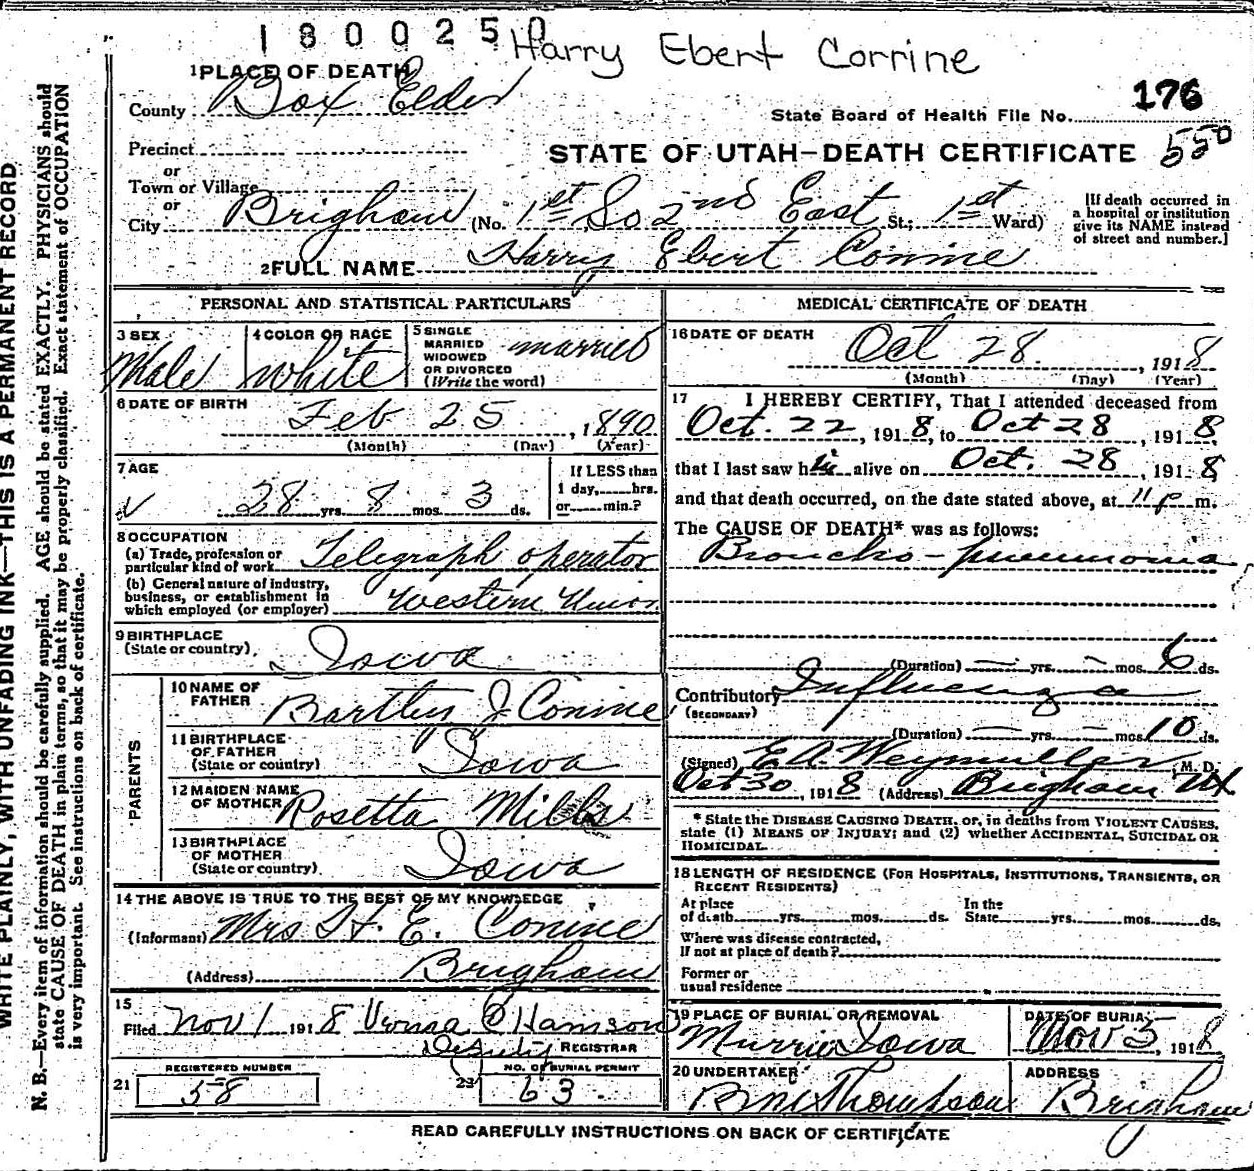 1800250 Harry Ebert Corrine
1 PLACE OF DEATH
County Box Elder
176
State Board of Health File No.
550
Precinct
STATE OF UTAH—DEATH CERTIFICATE
or
Town or Village
or
City Brigham (No. 1st So 2nd East St.; 1st Ward)
[If death occurred in
a hospital or institution
give its NAME instead
of street and number.]
2 FULL NAME Harry Ebert Conine
PERSONAL AND STATISTICAL PARTICULARS
3 SEX
Male
4 COLOR OR RACE
White
5 SINGLE
MARRIED
WIDOWED
OR DIVORCED
(Write the word)
married
6 DATE OF BIRTH
Feb 25, 1890
(Month) (Day) (Year)
7 AGE
28 yrs. 8 mos. 3 ds.
If LESS than
1 day, hrs.
or min.?
8 OCCUPATION
(a) Trade, profession or
particular kind of work Telegraph operator
(b) General nature of industry,
business, or establishment in
which employed (or employer) Western Union
9 BIRTHPLACE
(State or country) Iowa
PARENTS
10 NAME OF
FATHER Bartley J Conine
11 BIRTHPLACE
OF FATHER
(State or country) Iowa
12 MAIDEN NAME
OF MOTHER Rosetta Mills
13 BIRTHPLACE
OF MOTHER
(State or country) Iowa
14 THE ABOVE IS TRUE TO THE BEST OF MY KNOWLEDGE
(Informant) Mrs H. E. Conine
(Address) Brigham
15
Filed Nov 1 1918
Deputy REGISTRAR
REGISTERED NUMBER
21 58
NO. OF BURIAL PERMIT
23 63
MEDICAL CERTIFICATE OF DEATH
16 DATE OF DEATH
Oct 28, 1918
(Month) (Day) (Year)
17 I HEREBY CERTIFY, That I attended deceased from
Oct. 22, 1918, to Oct 28, 1918,
that I last saw him alive on Oct. 28, 1918,
and that death occurred, on the date stated above, at 11 p m.
The CAUSE OF DEATH* was as follows:
Broncho-pneumonia
(Duration) — yrs. — mos. 6 ds.
Contributory Influenza
(SECONDARY)
(Duration) — yrs. — mos. 10 ds.
(Signed) E. A. Weymuller, M. D.
Oct 30, 1918 (Address) Brigham
* State the DISEASE CAUSING DEATH, or, in deaths from VIOLENT CAUSES,
state (1) MEANS OF INJURY; and (2) whether ACCIDENTAL, SUICIDAL OR
HOMICIDAL.
18 LENGTH OF RESIDENCE (FOR HOSPITALS, INSTITUTIONS, TRANSIENTS, OR
RECENT RESIDENTS)
At place
of death yrs. mos. ds.
In the
State yrs. mos. ds.
Where was disease contracted,
If not at place of death?
Former or
usual residence
19 PLACE OF BURIAL OR REMOVAL
Iowa
DATE OF BURIAL
Nov 5, 1918
20 UNDERTAKER
Thompson
ADDRESS
Brigham
READ CAREFULLY INSTRUCTIONS ON BACK OF CERTIFICATE
WRITE PLAINLY, WITH UNFADING INK—THIS IS A PERMANENT RECORD
N. B.—Every item of information should be carefully supplied. AGE should be stated EXACTLY. PHYSICIANS should
state CAUSE OF DEATH in plain terms, so that it may be properly classified. Exact statement of OCCUPATION
is very important. See instructions on back of certificate.